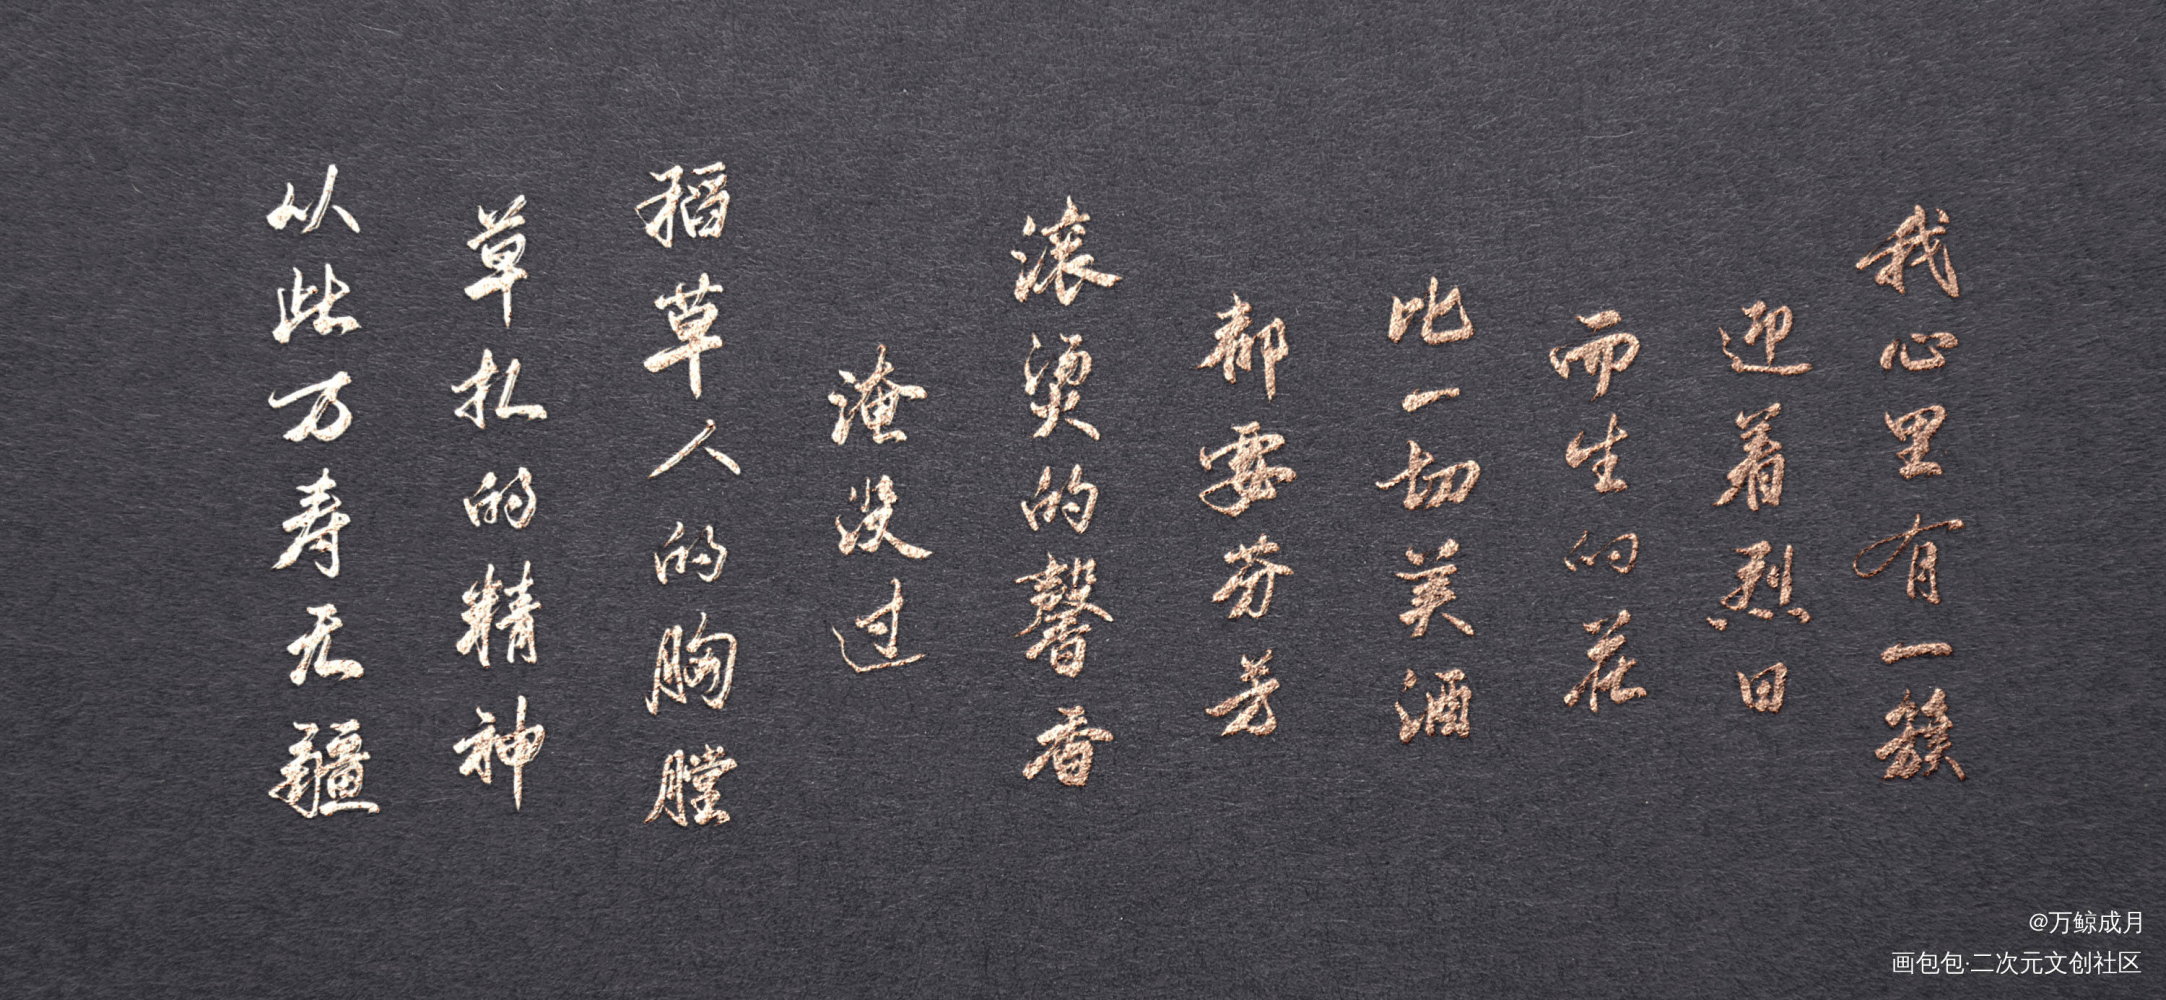 我心里有一簇
迎着烈日
而生的花
比一切美酒
都要芬芳
滚烫的馨香
淹没过
稻草人的胸膛
草扎的精神
从此万寿无疆
@万鲸成月
画包包·二次元文创社区